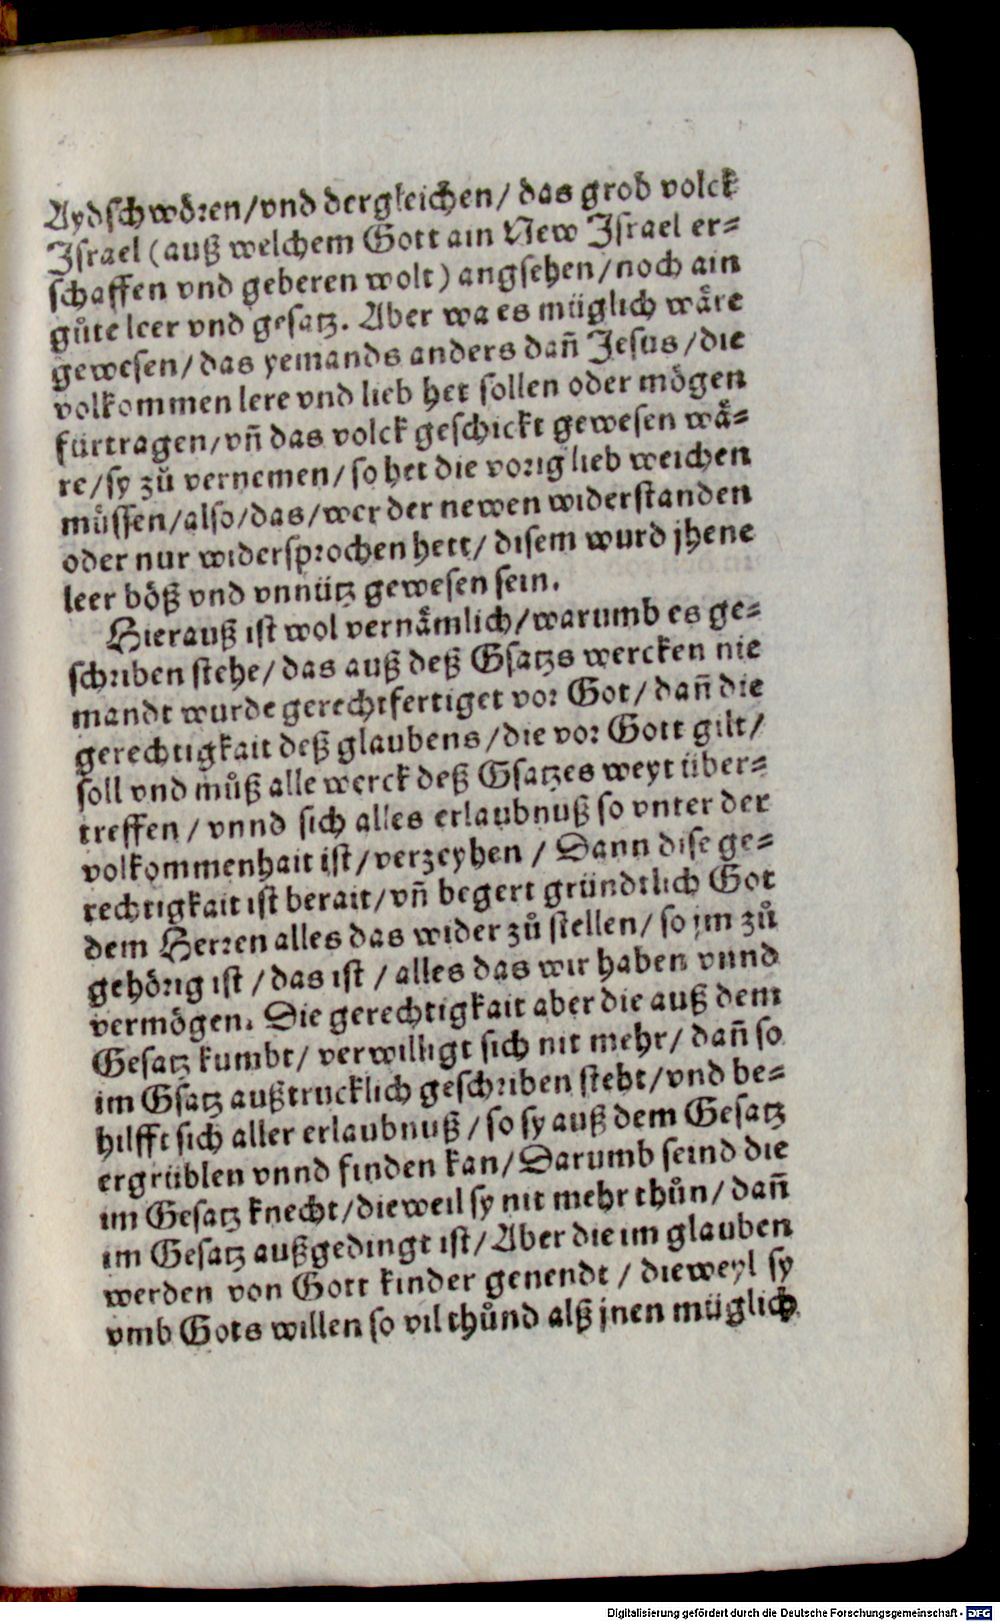 Aydschwören/vnd dergleichen/ das grob volck
Israel (auß welchem Gott ain New Israel er=
schaffen vnd geberen wolt) angsehen/noch ain
gůte leer vnd gesatz. Aber wa es müglich wåre
gewesen/das yemands anders dañ Jesus/die
volkommen lere vnd lieb het sollen oder mögen
fürtragen/vñ das volck geschickt gewesen wå=
re/sy zů vernemen/so het die vorig lieb weichen
müssen/also/das/wer der newen widerstanden
oder nur widersprochen hett/ disem wurd jhene
leer böß vnd vnnütz gewesen sein.
Hierauß ist wol vernåmlich/warumb es ge=
schriben stehe/das auß deß Gsatzs wercken nie
mandt wurde gerechtfertiget vor Got/dañ die
gerechtigkait deß glaubens/die vor Gott gilt/
soll vnd můß alle werck deß Gsatzes weyt über=
treffen/ vnnd sich alles erlaubnuß so vnter der
volkommenhait ist/verzeyhen / Dann dise ge=
rechtigkait ist berait/vñ begert gründtlich Got
dem Herren alles das wider zů stellen/ so jm zů
gehörig ist/das ist/alles das wir haben vnnd
vermögen. Die gerechtigkait aber die auß dem
Gesatz kumbt/ verwilligt sich nit mehr/ dañ so
im Gsatz außtrucklich geschriben steht/vnd be=
hilfft sich aller erlaubnuß/so sy auß dem Gesatz
ergrüblen vnnd finden kan/Darumb seind die
im Gesatz knecht/dieweil sy nit mehr thůn/dañ
im Gesatz außgedingt ist/Aber die im glauben
werden von Gott kinder genendt / dieweyl sy
vmb Gots willen so vil thůnd alß jnen müglich
Digitalisierung gefördert durch die Deutsche Forschungsgemeinschaft - DFG